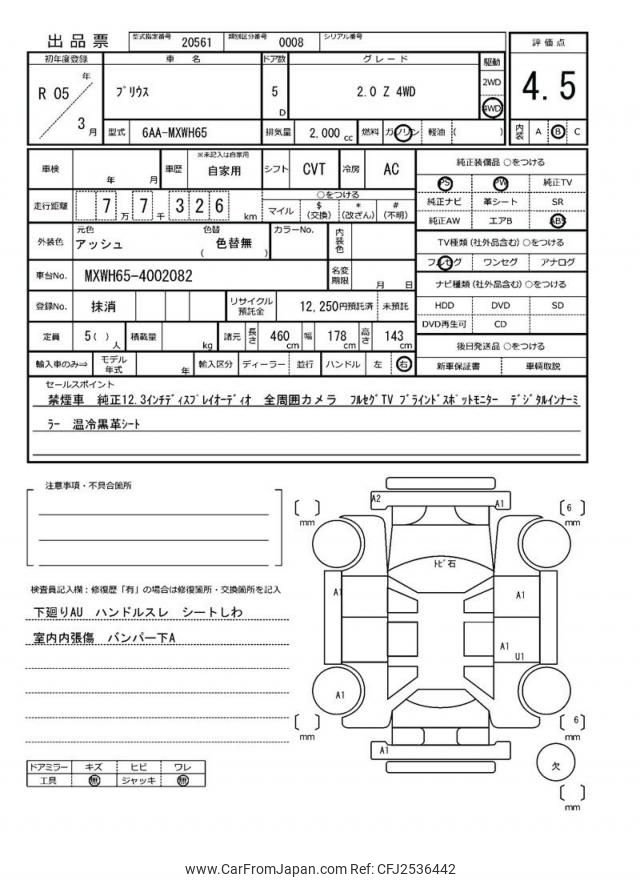 出品票
型式指定番号 20561 類別区分番号 0008 シリアル番号
初年度登録 車名 ドア数 グレード 駆動 評価点
R 05 年 3 月
プリウス 5 D 2.0 Z 4WD 2WD 4WD 4.5
型式 6AA-MXWH65 排気量 2,000 cc 燃料 ガソリン 軽油 ( ) 内装 A B C
車検 年 月 車歴 ※未記入は自家用 自家用 シフト CVT 冷房 AC
走行距離 7 万 7 千 3 2 6 km
○をつける
マイル $ (交換) * (改ざん) # (不明)
外装色 元色 アッシュ 色替 色替無 ( ) カラーNo. 内装色
車台No. MXWH65-4002082 名変期限 月 日
登録No. 抹消 リサイクル預託金 12,250円預託済 未預託
定員 5( ) 人 積載量 kg 諸元 長さ 460 cm 幅 178 cm 高さ 143 cm
輸入車のみ⇒ モデル年式 年 輸入区分 ディーラー 並行 ハンドル 左 右
純正装備品 ○をつける
PS PW 純正TV
純正ナビ 革シート SR
純正AW エアB ABS
TV種類(社外品含む)○をつける
フルセグ ワンセグ アナログ
ナビ種類(社外品含む)○をつける
HDD DVD SD
DVD再生可 CD
後日発送品 ○をつける
新車保証書 車輌取説
セールスポイント
禁煙車 純正12.3インチディスプレイオーディオ 全周囲カメラ フルセグTV ブラインドスポットモニター デジタルインナーミ
ラー 温冷黒革シート
注意事項・不具合箇所
検査員記入欄：修復歴「有」の場合は修復箇所・交換箇所を記入
下廻りAU ハンドルスレ シートしわ
室内内張傷 バンパー下A
ドアミラー キズ ヒビ ワレ
工具 無 ジャッキ 無
A2 A1
mm
6
mm
トビ石
A1 A1
A1
U1
A1
mm
6
mm
A1
欠
mm
www.CarFromJapan.com Ref: CFJ2536442